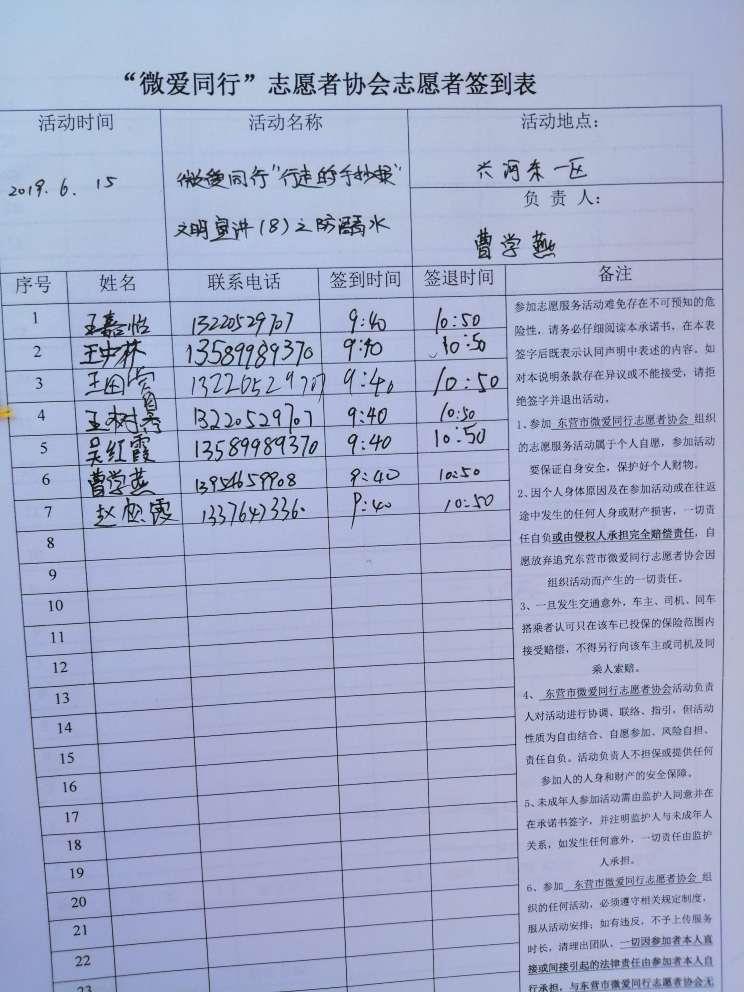 “微爱同行”志愿者协会志愿者签到表
活动时间 活动名称 活动地点：
2019.6.15 微爱同行“行走的手抄报” 兴河东一区
文明宣讲(8)之防溺水
负责人：
曹学燕
序号 姓名 联系电话 签到时间 签退时间 备注
1 王嘉怡 13220529707 9:40 10:50
2 王中林 13589989370 9:40 10:50
3 王田 13220529707 9:40 10:50
4 王树秀 13220529707 9:40 10:50
5 吴红霞 13589989370 9:40 10:50
6 曹学燕 13954659908 9:40 10:50
7 赵 霞 1337647336 9:40 10:50
8
9
10
11
12
13
14
15
16
17
18
19
20
21
22
23
参加志愿服务活动难免存在不可预知的危
险性，请务必仔细阅读本承诺书，在本表
签字后既表示认同声明中表述的内容。如
对本说明条款存在异议或不能接受，请拒
绝签字并退出活动。
1、参加 东营市微爱同行志愿者协会 组织
的志愿服务活动属于个人自愿，参加活动
要保证自身安全，保护好个人财物。
2、因个人身体原因及在参加活动或在往返
途中发生的任何人身或财产损害，一切责
任自负或由侵权人承担完全赔偿责任，自
愿放弃追究东营市微爱同行志愿者协会因
组织活动而产生的一切责任。
3、一旦发生交通意外，车主、司机、同车
搭乘者认可只在该车已投保的保险范围内
接受赔偿，不得另行向该车主或司机及同
乘人索赔。
4、 东营市微爱同行志愿者协会活动负责
人对活动进行协调、联络、指引，但活动
性质为自由结合、自愿参加、风险自担、
责任自负。活动负责人不担保或提供任何
参加人的人身和财产的安全保障。
5、未成年人参加活动需由监护人同意并在
在承诺书签字，并注明监护人与未成年人
关系，如发生任何意外，一切责任由监护
人承担。
6、参加 东营市微爱同行志愿者协会 组
织的任何活动，必须遵守相关规定制度，
服从活动安排；如有违反，不予上传服务
时长，清理出团队，一切因参加者本人直
接或间接引起的法律责任由参加者本人自
行承担，与东营市微爱同行志愿者协会无